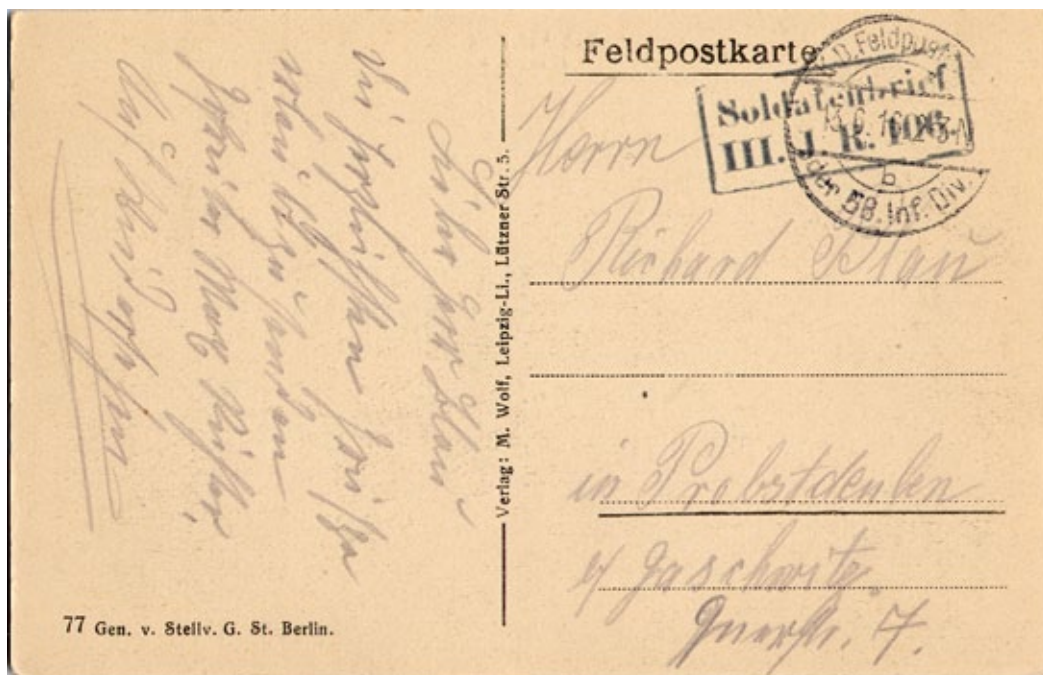 Feldpostkarte
K. D. Feldpost
13.6.16. 2-3 N
b
der 58. Inf. Div.
Soldatenbrief
III. J. R. 106.
Herrn
Richard Blau
in Probstdeuben
b/ Gaschwitz
Querstr. 7.
Verlag: M. Wolf, Leipzig-Li., Lützner Str. 5.
Lieber Herr Blau
Die herzlichsten
senden
Auf Wiedersehen
77 Gen. v. Stellv. G. St. Berlin.